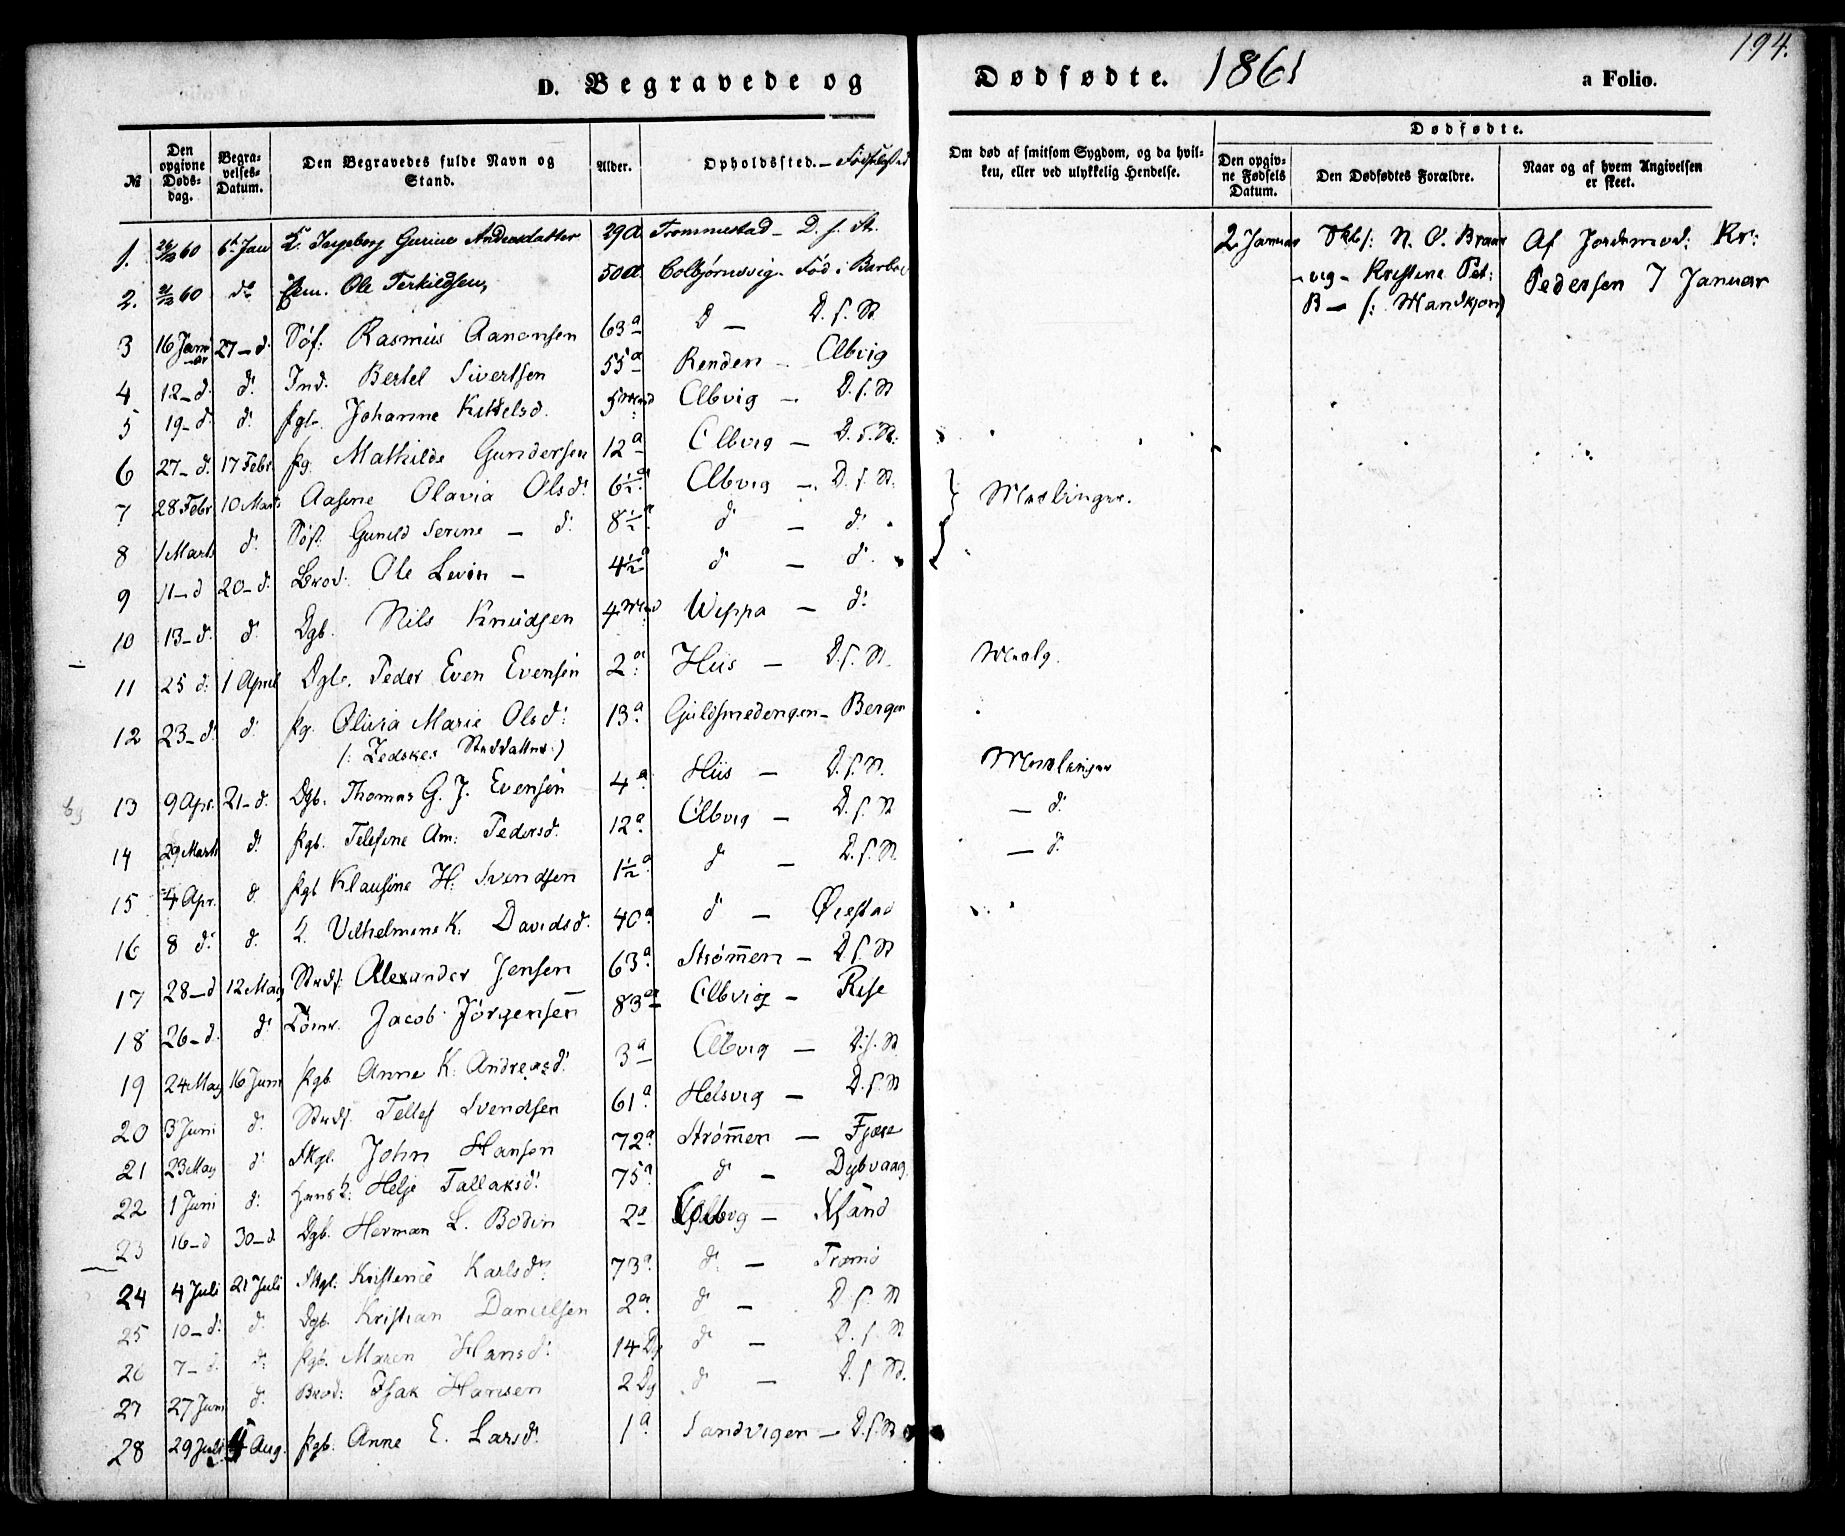 194.
D. Begravede og Dødfødte. 1861 a Folio.
№
Den opgivne Døds-dag.
Begra-velses-Datum.
Den Begravedes fulde Navn og Stand.
Alder.
Opholdssted. – Fødested
Om død af smitsom Sygdom, og da hvil-ken, eller ved ulykkelig Hendelse.
Dødfødte.
Den opgiv-ne Fødsels Datum.
Den Dødfødtes Forældre.
Naar og af hvem Angivelsen er skeet.
1. 26/12 60 6t Jan Ingeborg Gurine Andreasdatter 29a Trommestad – D. s. St.
2. 60 do Ole Terkildsen 50a Colbjørnsvig – Fød i Barbo
3 16 Januar 27–d. Rasmus Aanonsen 63a d – D. s. St
4 12–d. d. Ind. Bertel Sivertsen 55a Renden – Colbvig
5 19–d. d. Johanne Kittelsd. Colbvig – D. s. St
6 27–d. 17 Febr. Mathilde Gundersen 12a Colbvig – D. s. St.
7 28 Febr 10 Marts Aasine Olavia Olsd. 6½a Colbvig – D. s. St.
8 1 Marts d. Søst. Gunild Serine – d. 8½a d – d.
Meslinger.
9 11–d 20–d. Brod. Ole Levin – 4½a d – d.
10 13–d. d. Dgb. Nils Knudsen Wippa – d.
11 25 d. 1 April Dgb. Peder Even Evensen 2a Hiis – D. s. St. Meslg.
12 23–d. d. Olivia Marie Olsd. 13a Guldsmedengen – Bergen
13 9 Apr. 21–d. Dgb. Thomas G. J. Evensen 4a Hiis – D. s. St. Meslinger
14 29 Marts d. Pgb. Telesine Am: Pedersd. 12a Colbvig – D. s. St – d.
15 4 Apr. d. Pgb Klausine H. Svendsen 1½a d – D. s. St. – d.
16 8 d. d. Vilhelmine K. Davidsd. 40a d – Øiestad
17 28–d 12 May Alexander Jensen 63a Strømmen – D. s. St
18 26–d. d. Tømr. Jacob Jörgensen 83a Colbvig – Rise
19 24 May 16 Juni Pgb. Anne K. Andreasd. 3a Colbvig – D. s. St
20 3 Juni d. Tellef Svendsen 61a Helsvig – D. s. St
21 23 May d John Hansen 72a Strømmen – Fjære
22 1 Juni d. Hans Helje Tallaksd. 75a d – Dybvaag
23 16–d 30–d. Dgb. Herman L. Bodin 2a Colbvg –
24 4 Juli 21 Juli Kristence Karlsd. 73a d. – Tromø
25 10–d. d. Dgb. Kristian Danielsen 2a d – D. s. St
26 7–d. d. Pgb. Maren Hansd. 14 Dg d – D. s. St
27 27 Juni d. Brod. Isak Hansen 2 Dg d – D. s. St.
28 29 Juli 4 Aug. Pgb. Anne E. Larsd. 1a Sandvigen – D. s. St
2 Januar N. O. Braar
-vig – Kristine Pet:
Af Jordemod: Kr:
Pedersen 7 Januar